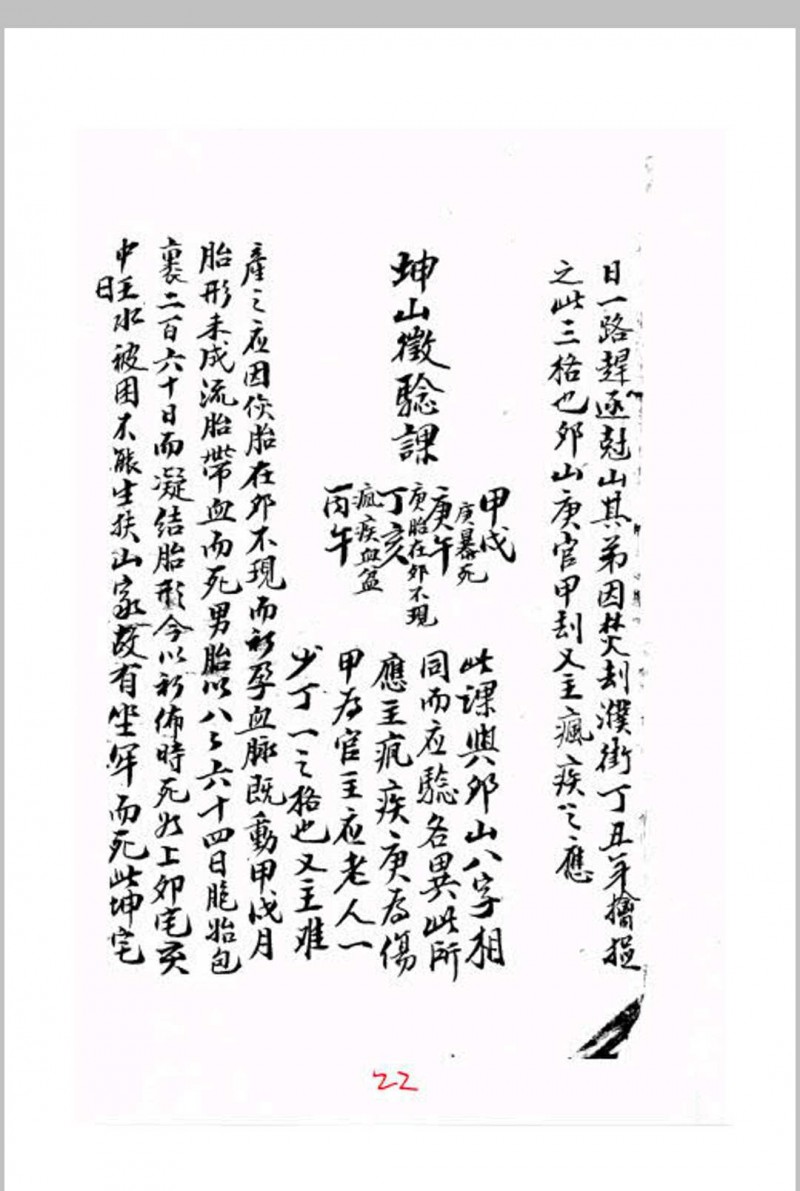 日一路趕逐尅山其弟因焚刦濮街丁丑年擒捉
之此三格也卯山庚官甲刦又主瘋疾之應
坤山徵驗課
甲戌
庚暴死
庚午
庚胎在卯不現
丁亥
瘋疾血盆
丙午
此課與卯山八字相
同而应驗各異此所
應主瘋疾庚為傷
甲為官主应老人一
少丁一之格也又主难
產之应因係胎在卯不現而衫孕血脉既動甲戌月
胎形未成流胎帶血而死男胎以八八六十四日脆始包
裹二百六十日而凝結胎形今以衫佈時死为上卯宅亥
中旺水被困不能生扶山家故有坐牢而死此坤宅
日
22